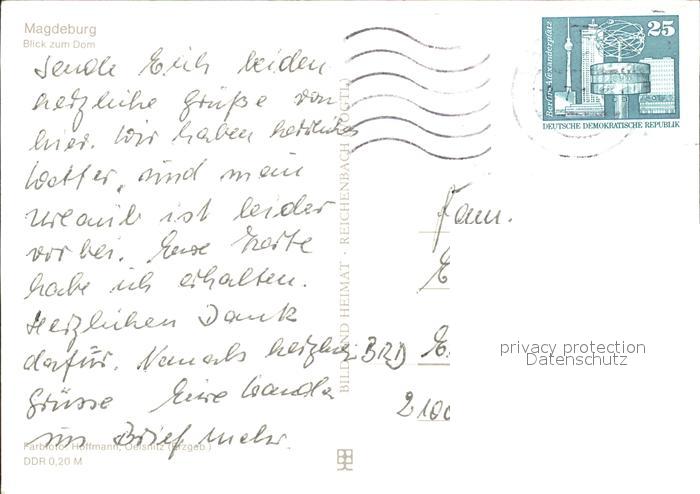 Magdeburg
Blick zum Dom
Sende Euch beiden
herzliche Grüße von
hier. Wir haben herrliches
Wetter, und mein
Urlaub ist leider
vorbei. Eure Karte
habe ich erhalten.
Herzlichen Dank
dafür. Nomals herzliche
Grüsse Eure Wanda
im Brief mehr.
Farbfoto: Hoffmann, Oelsnitz (Erzgeb.)
DDR 0,20 M
BILD UND HEIMAT · REICHENBACH (VOGTL)
Berlin-Alexanderplatz
25
DEUTSCHE DEMOKRATISCHE REPUBLIK
Fam.
E
BRD E.
2100
privacy protection
Datenschutz